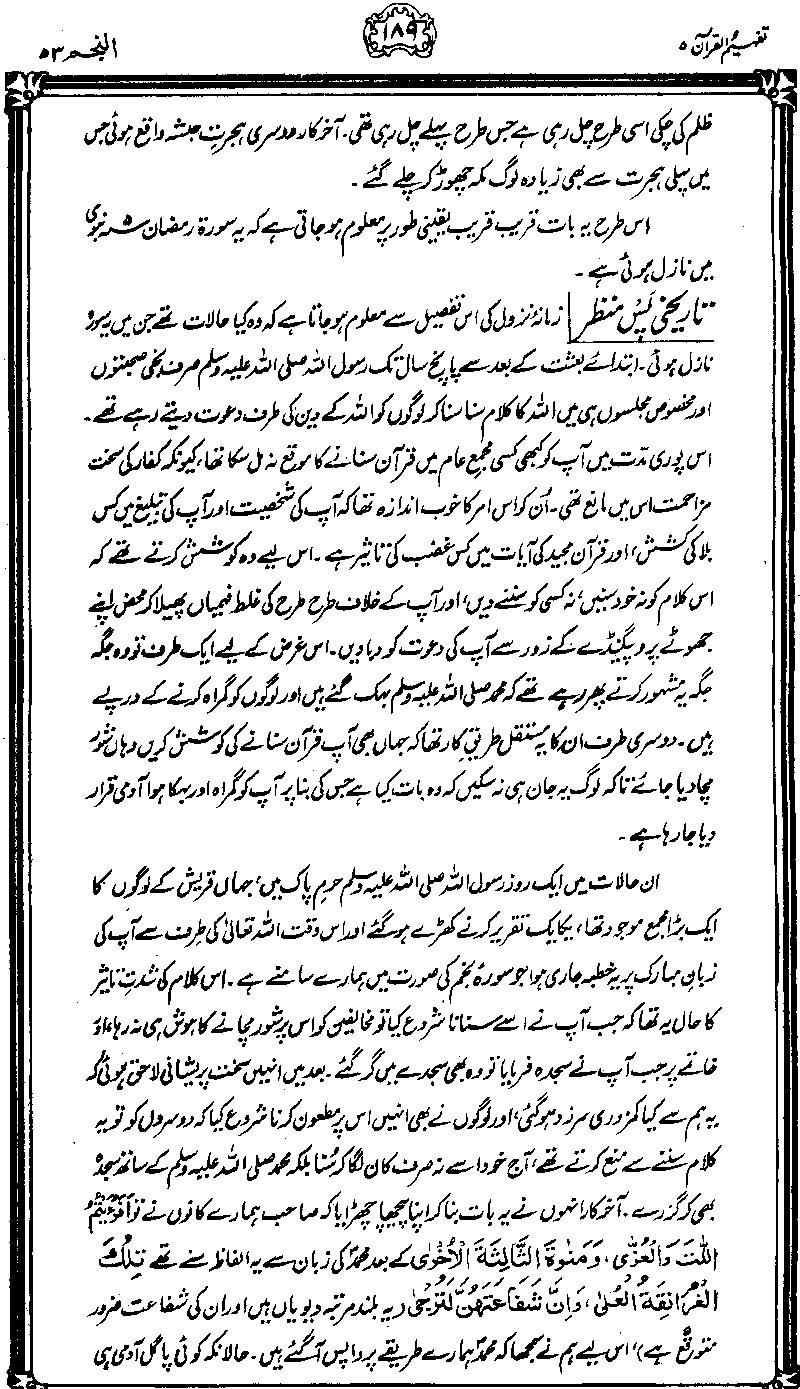 تفہیم القرآن ۵
۱۸۹
النجم ۵۳
ظلم کی چکی اسی طرح چل رہی ہے جس طرح پہلے چل رہی تھی۔ آخر کار دوسری ہجرتِ حبشہ واقع ہوئی جس
میں پہلی ہجرت سے بھی زیادہ لوگ مکہ چھوڑ کر چلے گئے۔
اس طرح یہ بات قریب قریب یقینی طور پر معلوم ہو جاتی ہے کہ یہ سورۃ رمضان ۵ نبوی
میں نازل ہوئی ہے۔
تاریخی پس منظر زمانۂ نزول کی اس تفصیل سے معلوم ہو جاتا ہے کہ وہ کیا حالات تھے جن میں یہ سورہ
نازل ہوئی۔ ابتدائے بعثت کے بعد سے پانچ سال تک رسول اللہ صلی اللہ علیہ وسلم صرف نجی صحبتوں
اور مخصوص مجلسوں ہی میں اللہ کا کلام سنا سنا کر لوگوں کو اللہ کے دین کی طرف دعوت دیتے رہے تھے۔
اس پوری مدت میں آپ کو کبھی کسی مجمع عام میں قرآن سنانے کا موقع نہ مل سکا تھا، کیونکہ کفار کی سخت
مزاحمت اس میں مانع تھی۔ اُن کو اس امر کا خوب اندازہ تھا کہ آپ کی شخصیت اور آپ کی تبلیغ میں کس
بلا کی کشش، اور قرآن مجید کی آیات میں کس غضب کی تاثیر ہے۔ اس لیے وہ کوشش کرتے تھے کہ
اس کلام کو نہ خود سنیں، نہ کسی کو سننے دیں، اور آپ کے خلاف طرح طرح کی غلط فہمیاں پھیلا کر محض اپنے
جھوٹے پروپگنڈے کے زور سے آپ کی دعوت کو دبا دیں۔ اس غرض کے لیے ایک طرف تو وہ جگہ
جگہ یہ مشہور کرتے پھر رہے تھے کہ محمد صلی اللہ علیہ وسلم بہک گئے ہیں اور لوگوں کو گمراہ کرنے کے درپے
ہیں۔ دوسری طرف ان کا یہ مستقل طریقِ کار تھا کہ جہاں بھی آپ قرآن سنانے کی کوشش کریں وہاں شور
مچا دیا جائے تاکہ لوگ یہ جان ہی نہ سکیں کہ وہ بات کیا ہے جس کی بنا پر آپ کو گمراہ اور بہکا ہوا آدمی قرار
دیا جا رہا ہے۔
ان حالات میں ایک روز رسول اللہ صلی اللہ علیہ وسلم حرم پاک میں، جہاں قریش کے لوگوں کا
ایک بڑا مجمع موجود تھا، یکایک تقریر کرنے کھڑے ہو گئے اور اس وقت اللہ تعالیٰ کی طرف سے آپ کی
زبانِ مبارک پر یہ خطبہ جاری ہوا جو سورۂ نجم کی صورت میں ہمارے سامنے ہے۔ اس کلام کی شدتِ تاثیر
کا حال یہ تھا کہ جب آپ نے اسے سنانا شروع کیا تو مخالفین کو اس پر شور مچانے کا ہوش ہی نہ رہا، اور
خاتمے پر جب آپ نے سجدہ فرمایا تو وہ بھی سجدے میں گر گئے۔ بعد میں انہیں سخت پریشانی لاحق ہوئی کہ
یہ ہم سے کیا کمزوری سرزد ہو گئی، اور لوگوں نے بھی انہیں اس پر مطعون کرنا شروع کیا کہ دوسروں کو تو یہ
کلام سننے سے منع کرتے تھے، آج خود اسے نہ صرف کان لگا کر سُنا بلکہ محمد صلی اللہ علیہ وسلم کے ساتھ سجدہ
بھی کر گزرے۔ آخر کار انہوں نے یہ بات بنا کر اپنا پیچھا چھڑایا کہ صاحب ہمارے کانوں نے تو اَفَرَءَیْتُمُ
اللّٰتَ وَالْعُزّٰی، وَمَنٰوۃَ الثَّالِثَۃَ الْاُخْرٰی کے بعد محمدؐ کی زبان سے یہ الفاظ سنے تھے تِلْکَ
الْغُرَانِقَۃُ الْعُلٰی، وَاِنَّ شَفَاعَتَھُنَّ لَتُرْجٰی (یہ بلند مرتبہ دیویاں ہیں اور ان کی شفاعت ضرور
متوقع ہے)، اس لیے ہم نے سمجھا کہ محمدؐ ہمارے طریقے پر واپس آ گئے ہیں۔ حالانکہ کوئی پاگل آدمی ہی